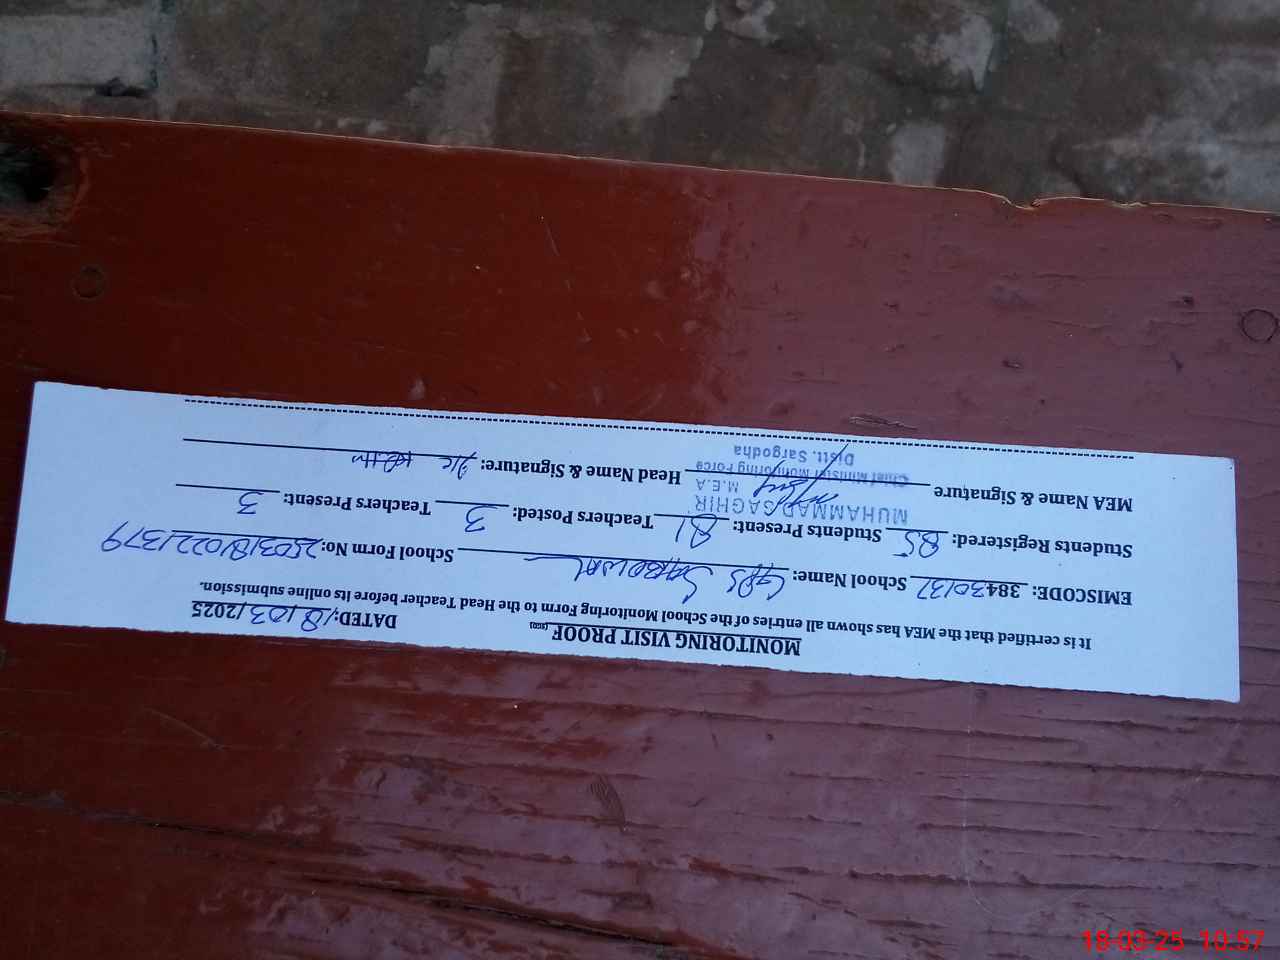 MONITORING VISIT PROOF
DATED: 18/03/2025
It is certified that the MEA has shown all entries of the School Monitoring Form to the Head Teacher before its online submission.
EMISCODE: 38430137 School Name: GPS School Form No: 2503181022 1379
Students Registered: 85 Students Present: 81 Teachers Posted: 3 Teachers Present: 3
MUHAMMAD SAGHIR
M.E.A
MEA Name & Signature Head Name & Signature:
Chief Minister Monitoring Force
Distt. Sargodha
18-03-25 10:57